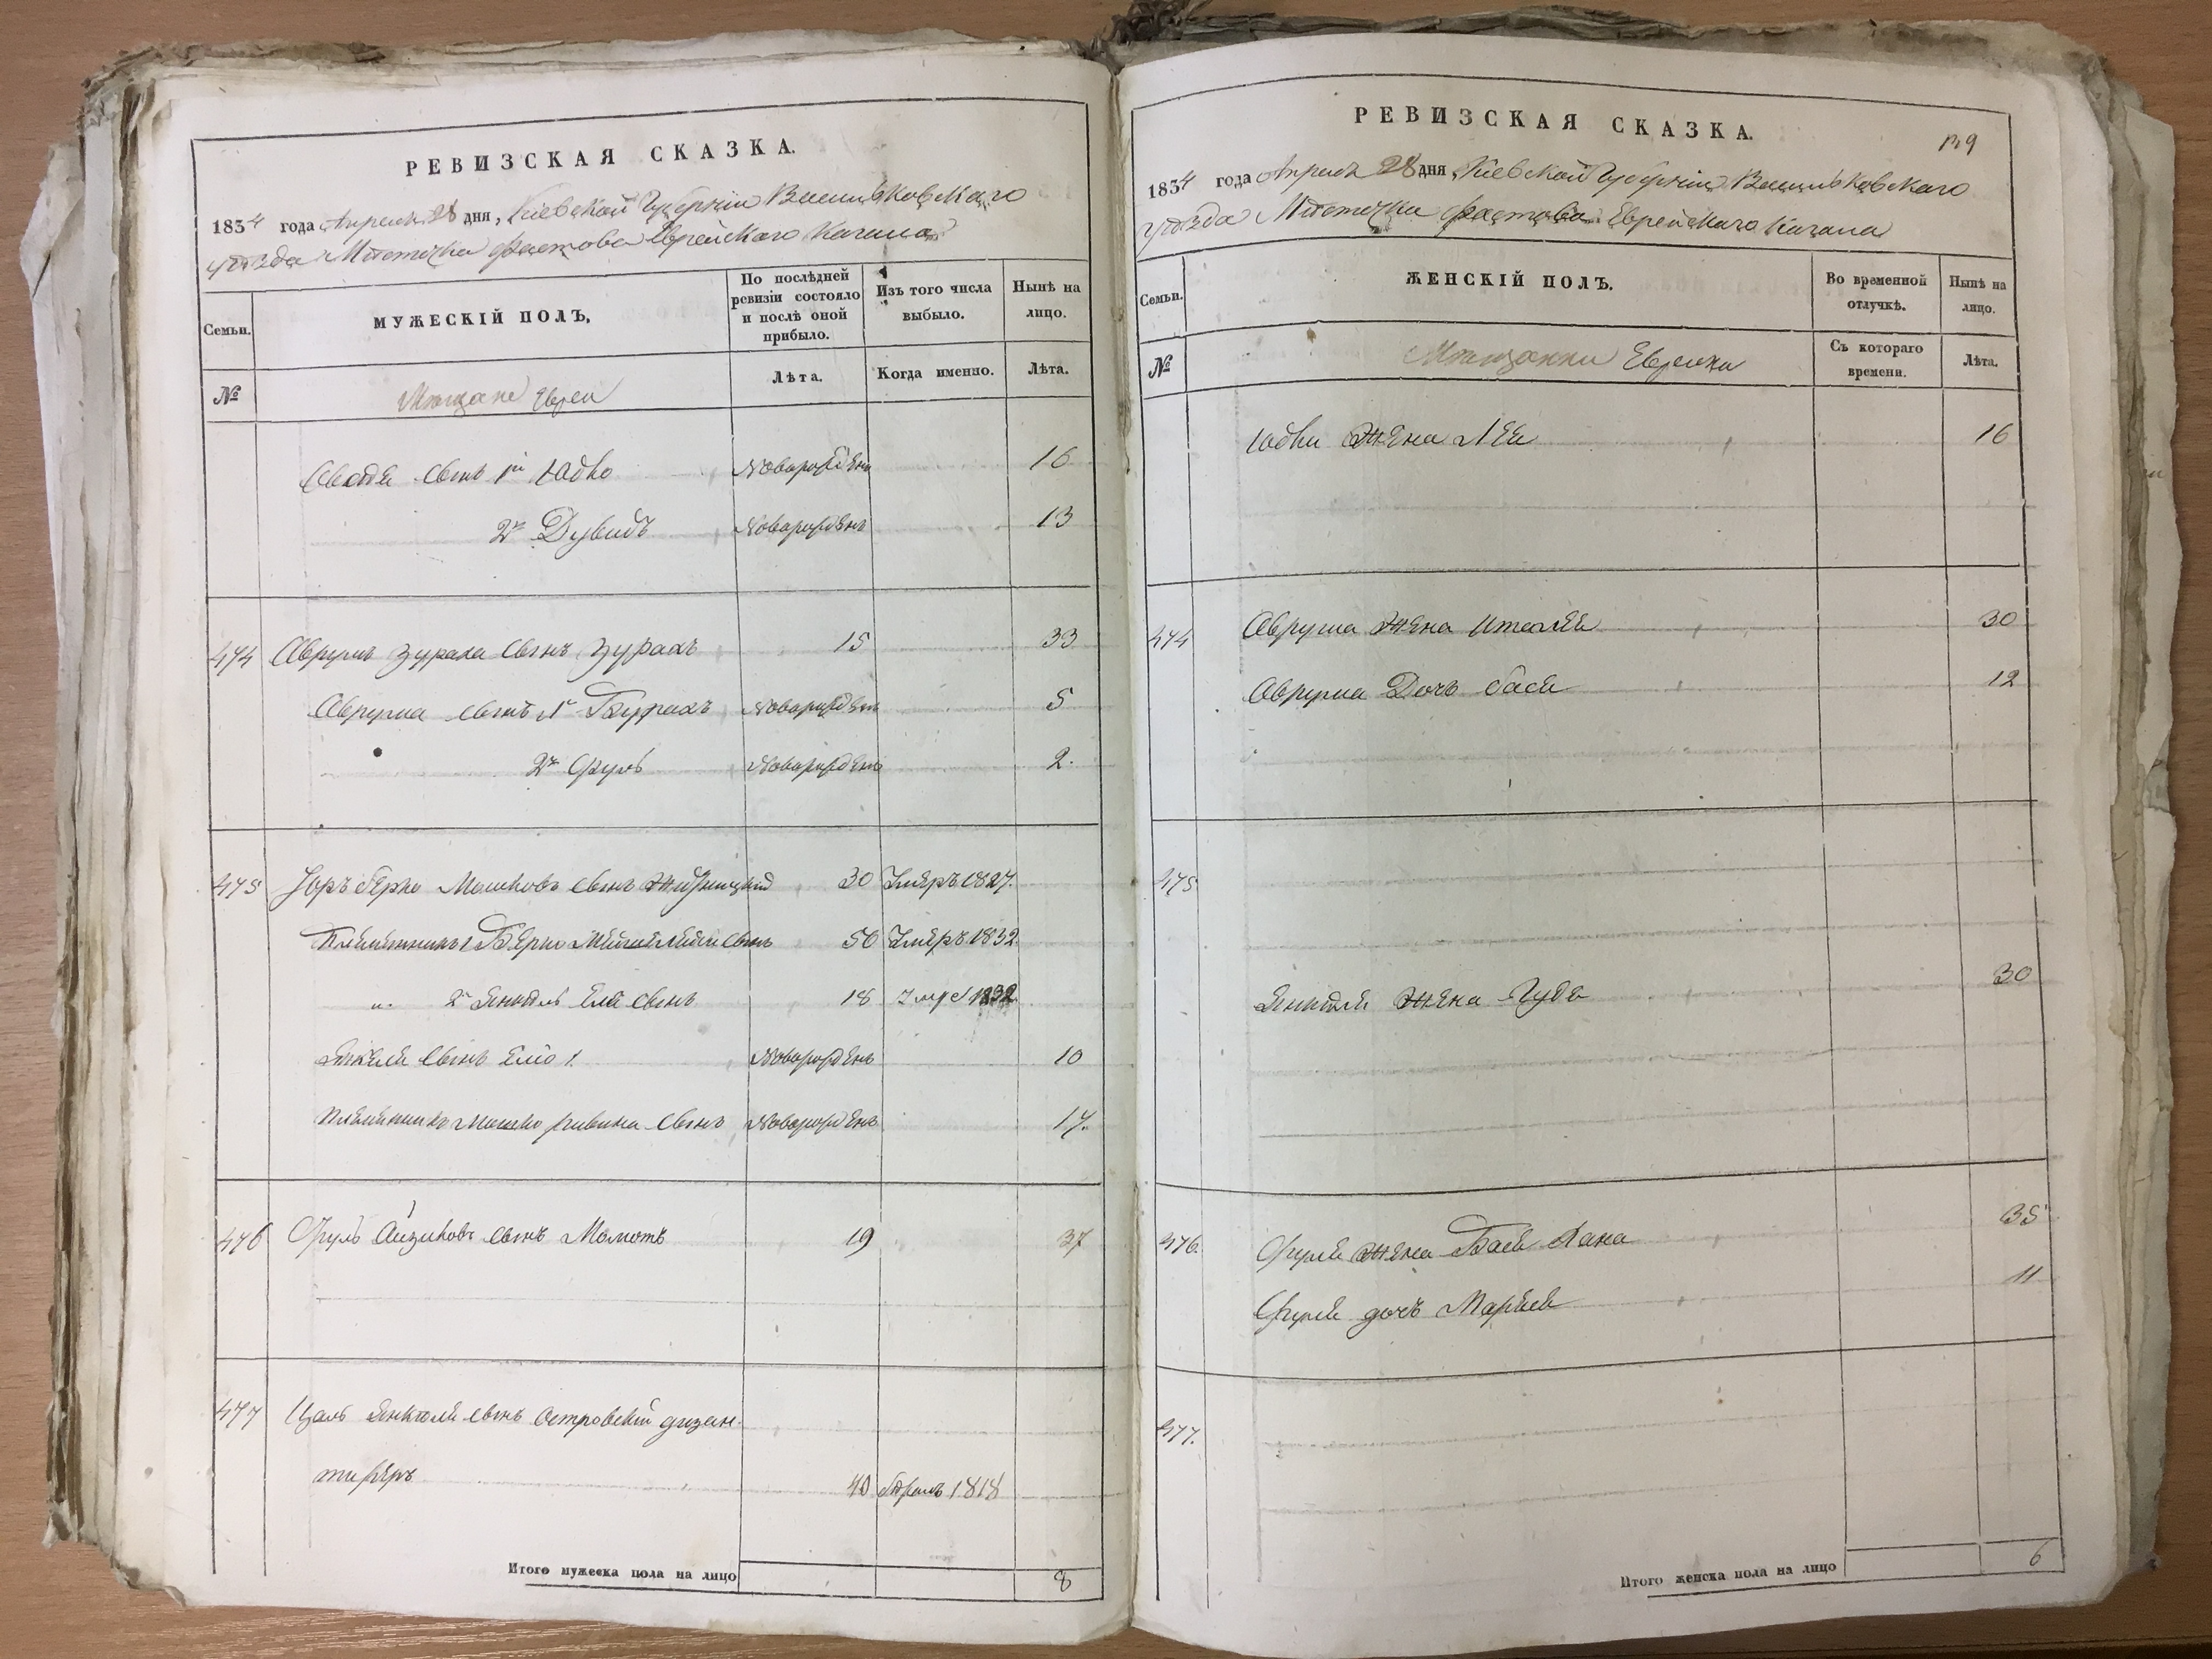 РЕВИЗСКАЯ СКАЗКА.
1834 года Апреля 28 дня, Кіевской Губерніи Васильковскаго
уѣзда Мѣстечка Фастова Еврейскаго Кагала
Семьи.
МУЖЕСКІЙ ПОЛЪ.
По послѣдней ревизіи состояло и послѣ оной прибыло.
Изъ того числа выбыло.
Нынѣ на лицо.
№
Мѣщане Евреи
Лѣта.
Когда именно.
Лѣта.
сынъ 1й Юдко Новорожденъ 16
2й Дувидъ Новорожденъ 13
474 Аврумъ Зураха сынъ Зурахъ 15 33
Аврума сынъ 1й Бурахъ Новорожденъ 5
2й Сруль Новорожденъ 2.
475 Берко Мошковъ сынъ 30 Умеръ 1827.
Племянникъ 1 Берко сынъ 56 Умеръ 1832.
2й Янкель Еля сынъ 18 Умер 1832
Янкеля сынъ Еліо 1. Новорожденъ 10
Племянникъ Мошко Ривина сынъ Новорожденъ 17.
476 Сруль Айзиковъ сынъ Мамотъ 19 37
477 Цаль Янкеля сынъ Островскій дизен-
тиръ 40 1818
Итого мужеска пола на лицо 8
РЕВИЗСКАЯ СКАЗКА.
139
1834 года Апреля 28 дня, Кіевской Губерніи Васильковскаго
уѣзда Мѣстечка Фастова Еврейскаго Кагала
Семьи.
ЖЕНСКІЙ ПОЛЪ.
Во временной отлучкѣ.
Нынѣ на лицо.
№
Мѣщанки Еврейки
Съ котораго времени.
Лѣта.
Юдки Жена Лея 16
474 Аврума Жена 30
Аврума Дочь Бася 12
475
Янкеля Жена Гуда 30
476. Сруля Жена Бася Хана 35
Сруля дочь Маріея 11
477.
Итого женска пола на лицо 6